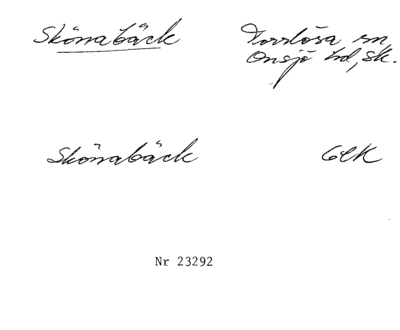 Skönabäck Torrlösa sn
Onsjö hd, Sk.
Skönabäck GEK
Nr 23292